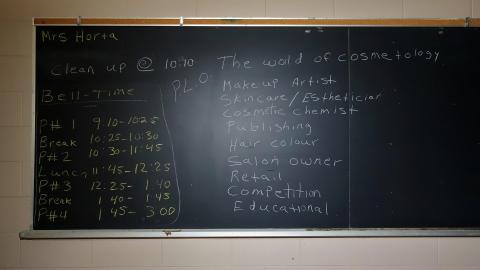 Mrs Horta
Clean up @ 10:10
The world of cosmetology
PLO
Bell-Time
P# 1 9:10-10:25
Break 10:25-10:30
P#2 10:30-11:45
Lunch 11:45-12:25
P#3 12:25-1:40
Break 1:40-1:45
P#4 1:45-3:00
Makeup Artist
Skincare/Esthetician
Cosmetic Chemist
Publishing
Hair colour
Salon owner
Retail
Competition
Educational